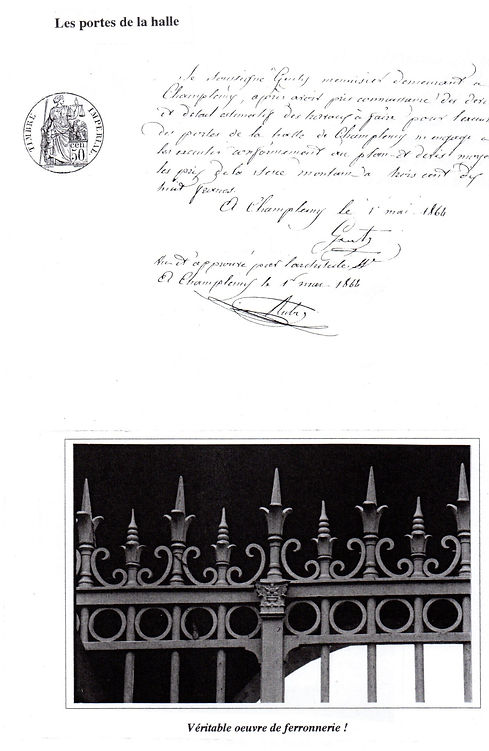 Les portes de la halle
TIMBRE IMPERIAL
50 cen
Je soussigné menuisier demeurant à
Champlemy, après avoir pris connaissance des devis
et détail estimatif des travaux à faire pour
des portes de la halle de Champlemy m'engage à
les exécuter conformément au plan et devis
les prix de la somme montant à trois cent dix
huit francs
A Champlemy le 1 mai 1864
Vu et approuvé par l'architecte
A Champlemy le 1er mai 1864
Véritable oeuvre de ferronnerie !